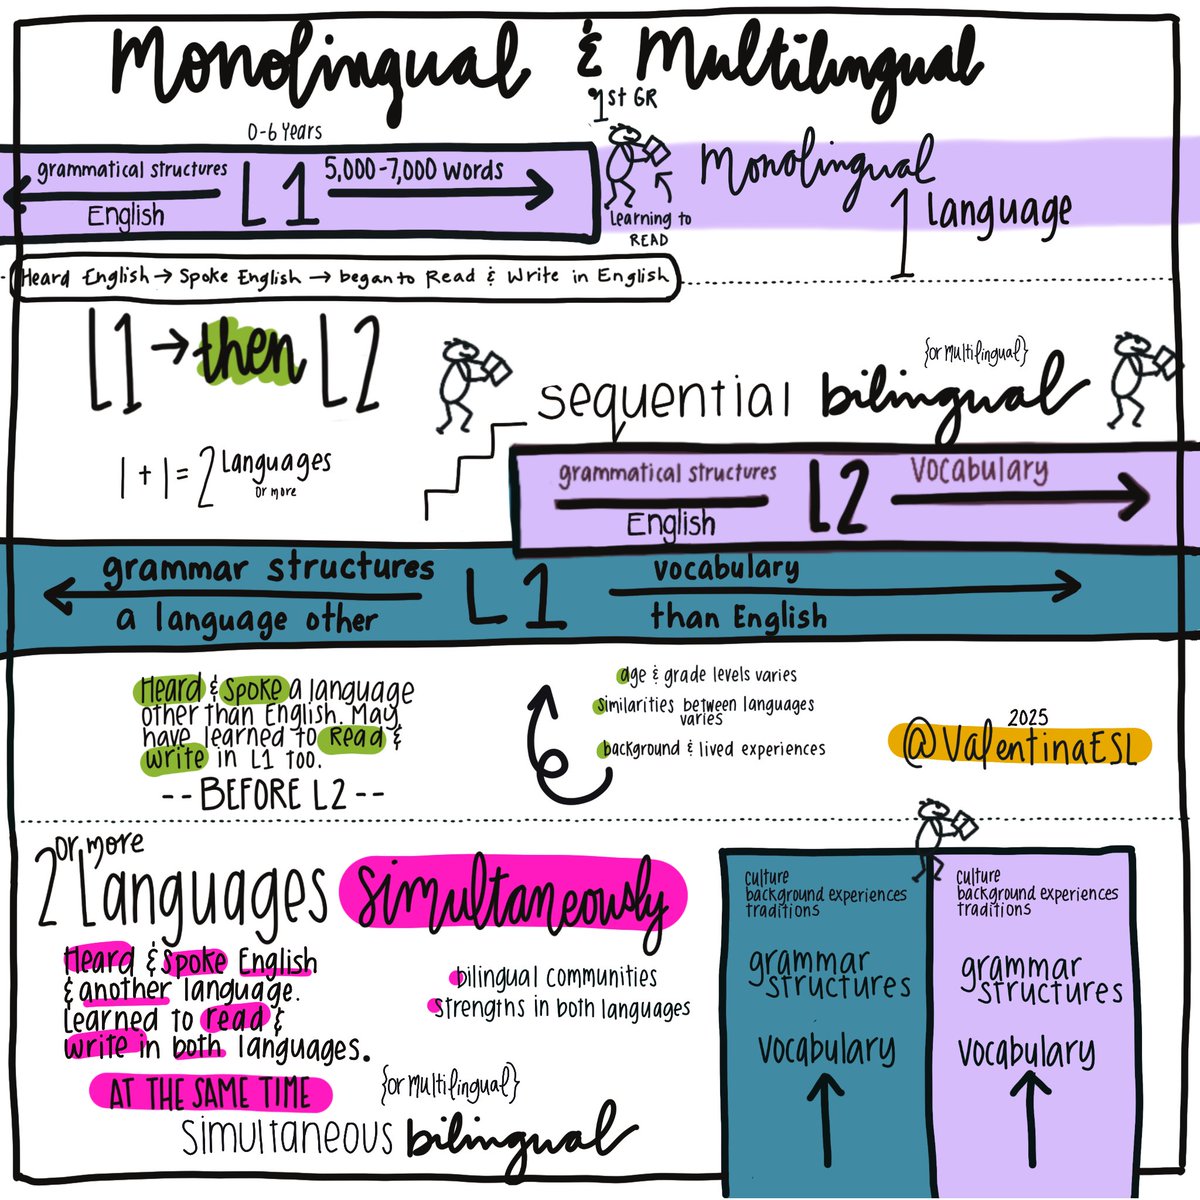 Monolingual & Multilingual
0-6 Years
1st GR
grammatical structures
English
L1
5,000-7,000 words
Learning to
READ
Monolingual
1 Language
Heard English → Spoke English → began to Read & Write in English
L1 → then L2
1 + 1 = 2 Languages
or more
{or multilingual}
sequential bilingual
grammatical structures
English
L2
vocabulary
grammar structures
a language other
L1
vocabulary
than English
Heard & Spoke a language
other than English. May
have learned to Read &
write in L1 too.
-- BEFORE L2 --
age & grade levels varies
similarities between languages
varies
background & lived experiences
2025
@ValentinaESL
or more
2 Languages simultaneously
Heard & Spoke English
& another language.
Learned to read &
write in both languages.
AT THE SAME TIME
bilingual communities
strengths in both languages
{or multilingual}
simultaneous bilingual
culture
background experiences
traditions
grammar
structures
vocabulary
culture
background experiences
traditions
grammar
structures
vocabulary